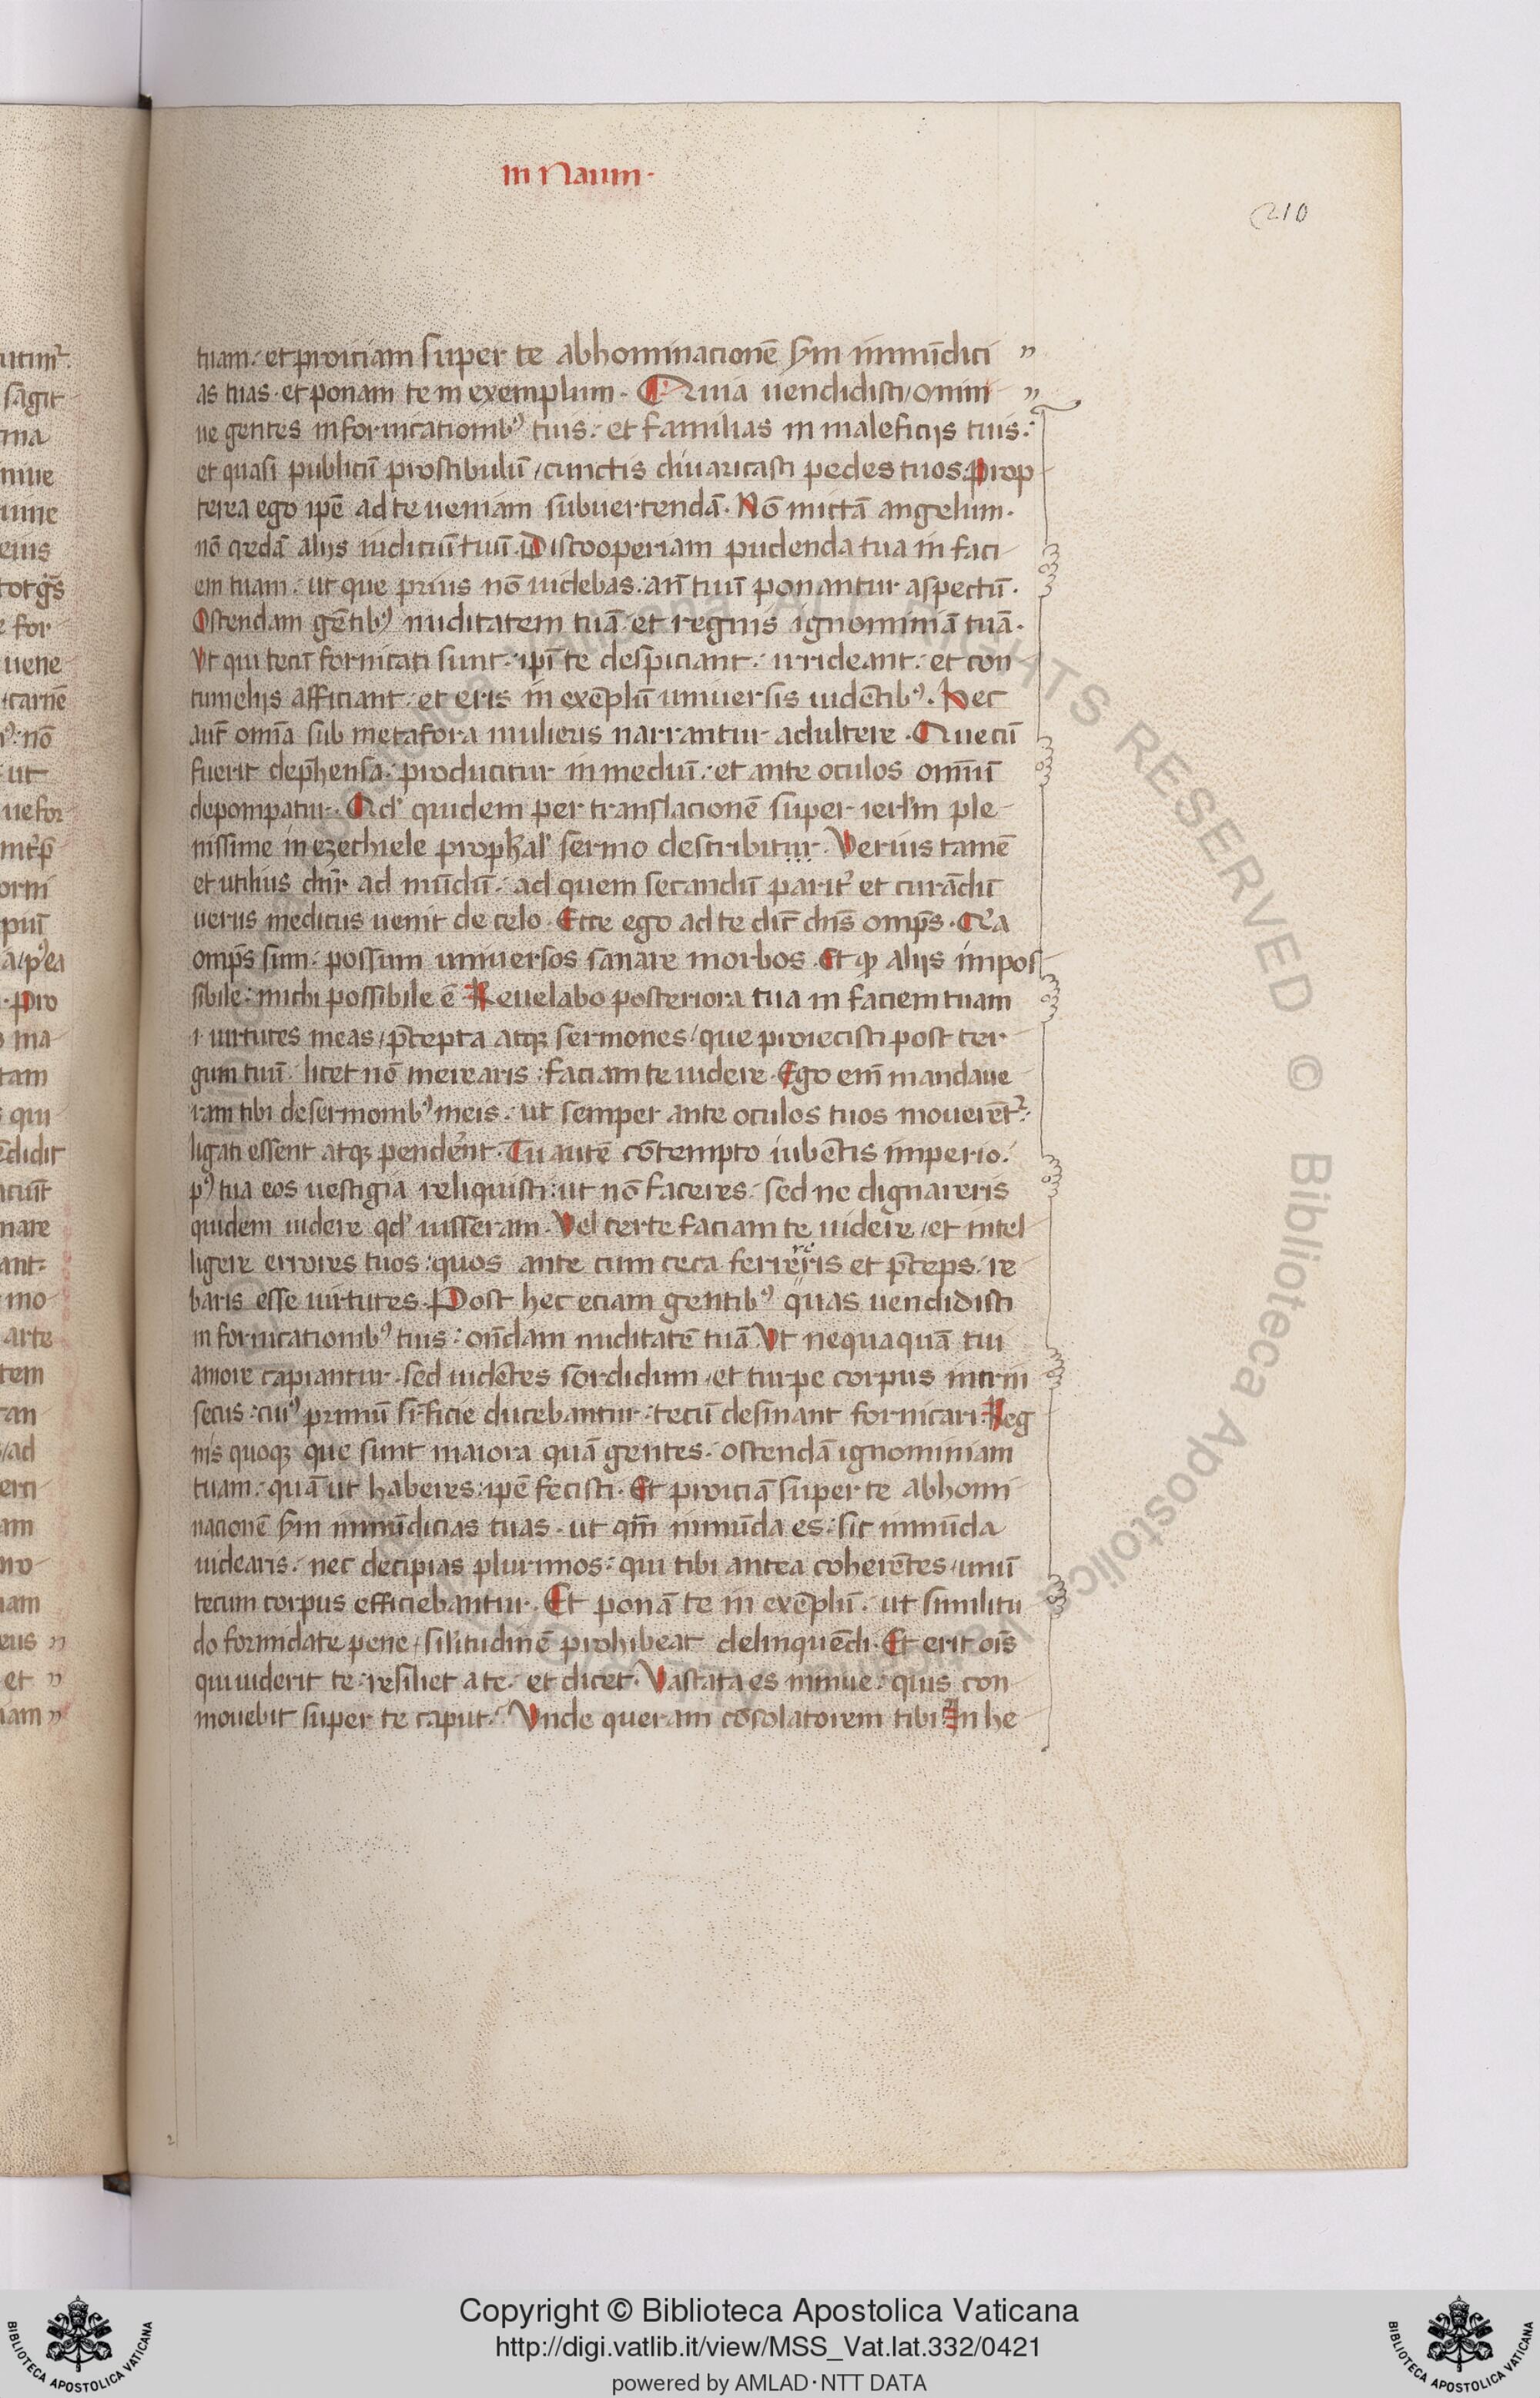 in Naum·
210
tuam: et proiciam super te abhominacionē s̄m inmūdici ”
as tuas· et ponam te in exemplum· Quia uendidisti, o nini ”
ue gentes in fornicationibꝰ tuis: et familias in maleficijs tuis:
et quasi publicū prostibulū, cunctis diuaricasti pedes tuos· prop
terea ego ip̄e ad te ueniam subuertendā. Nō mittā angelum·
nō credā alijs iudiciū tuū· Discooperiam pudenda tua in faci
em tuam: ut que prius nō uidebas: an̄ tuū ponantur aspectū·
Ostendam gētibꝰ nuditatem tuā et regnis ignominiā tuā·
Vt qui tecū fornicati sunt: ip̄i te despiciant: irrideant: et con
tumelijs afficiant: et eris in exēplū uniuersis uidētibꝰ. Hec
aut̄ om̄ia sub metafora mulieris narrantur adultere· Que cū
fuerit dep̄hensa: producitur in mediū: et ante oculos om̄iū
depompatur· Qd' quidem per translacionē super ierl̄m ple
nissime in ezechiele proph̄al' sermo describitur· Verius tamē
et utilius dr̄ ad mūdū: ad quem secandū parit᷑ et curādū
uerus medicus uenit de celo· Ecce ego ad te dic̄ dn̄s omp̄s· Qa
omp̄s sum: possum uniuersos sanare morbos· Et ꝙ alijs impos
sibile: michi possibile ē· Reuelabo posteriora tua in faciem tuam
·i· uirtutes meas, p̄cepta atqꝫ sermones, que proiecisti post ter
gum tuū· licet nō merearis: faciam te uidere· Ego em̄ mandaue
ram tibi de sermonibꝰ meis: ut semper ante oculos tuos mouerēt᷑:
ligati essent atqꝫ pender̄nt· Tu autē cōtempto iubētis imperio:
pꝰ tua eos uestigia reliquisti: ut nō faceres: sed ne dignareris
quidem uidere qd' iusseram· Vel certe faciam te uidere, et intel
ligere errores tuos: quos ante cum ceca ferreris et p̄ceps: re
re
baris esse uirtutes· Post hec eciam gentibꝰ quas uendidisti
in fornicationibꝰ tuis: on̄dam nuditatē tuā Vt nequaquā tui
amore capiantur· sed uidētes sordidum, et turpe corpus intrin
secus: cuiꝰ primū sr̄ficie ducebantur: tecū desinant fornicari· Reg
nis quoqꝫ que sunt maiora quā gentes· ostendā ignominiam
tuam: quā ut haberes: ip̄e fecisti· Et proiciā super te abhomi
nacionē s̄m inmūdicias tuas· ut qm̄ inmūda es: sic inmūda
uidearis: nec decipias plurimos: qui tibi antea coherētes, unū
tecum corpus efficiebantur· Et ponā te in exēplū: ut similitu
do formidate pene, sil'itudinē prohibeat delinquēdi· Et erit om̄s
qui uiderit te: resiliet a te: et dicet· Vastata es niniue: quis con
mouebit super te caput: Vnde queram cōsolatorem tibi· In he
Copyright © Biblioteca Apostolica Vaticana
http://digi.vatlib.it/view/MSS_Vat.lat.332/0421
powered by AMLAD · NTT DATA